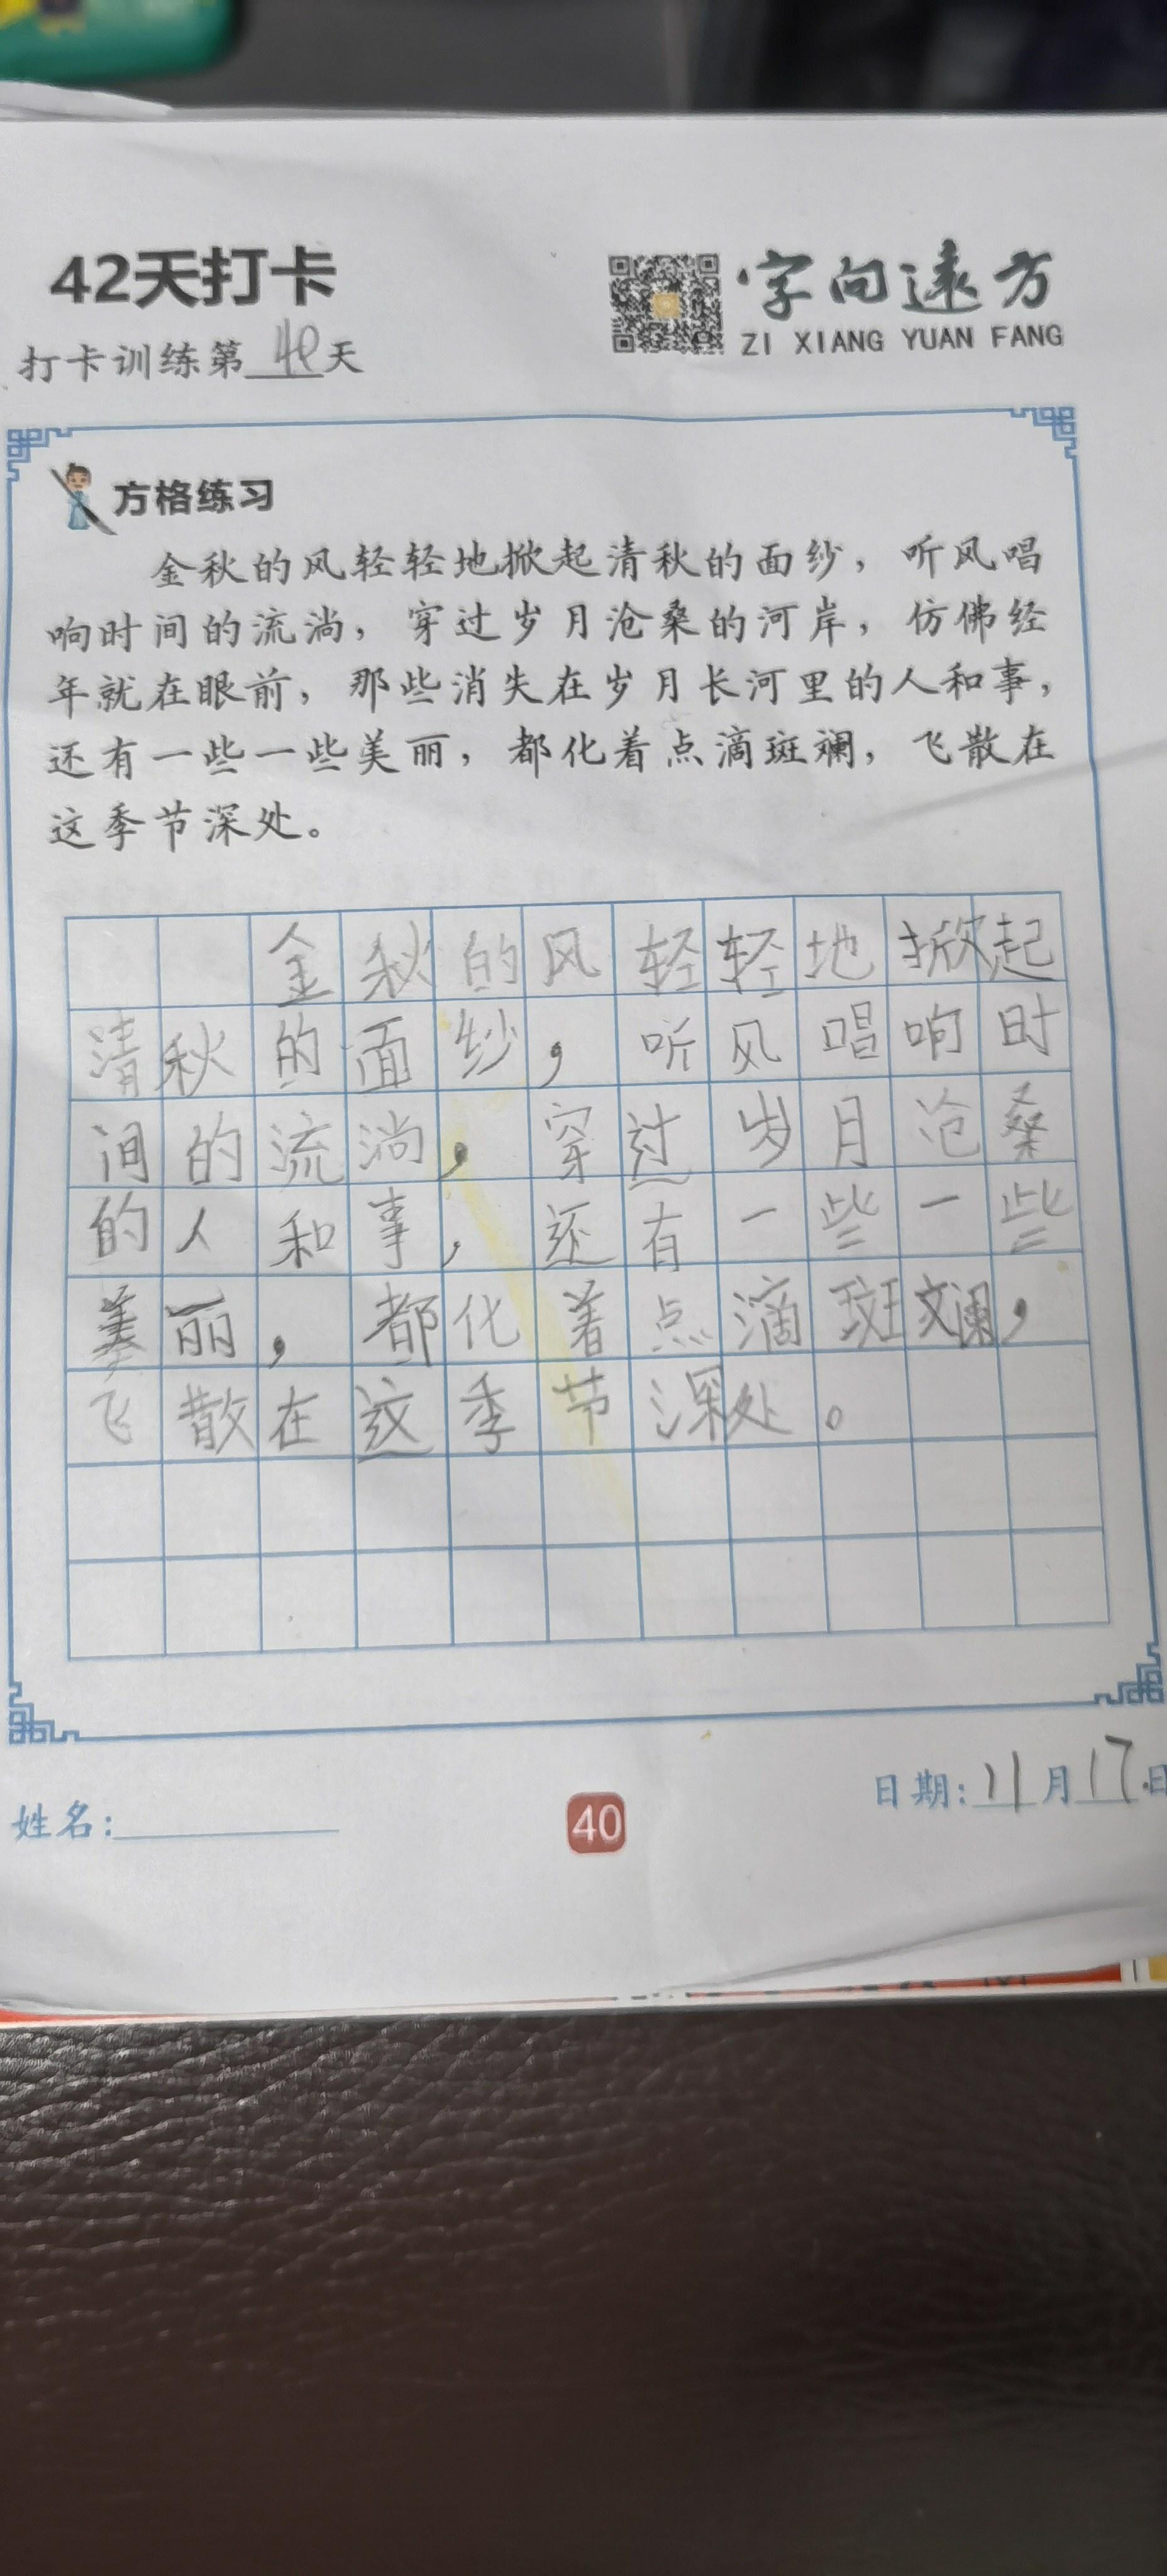 42天打卡
字向远方
ZI XIANG YUAN FANG
打卡训练第40天
方格练习
金秋的风轻轻地掀起清秋的面纱，听风唱
响时间的流淌，穿过岁月沧桑的河岸，仿佛经
年就在眼前，那些消失在岁月长河里的人和事，
还有一些一些美丽，都化着点滴斑斓，飞散在
这季节深处。
金秋的风轻轻地掀起
清秋的面纱，听风唱响时
间的流淌，穿过岁月沧桑
的人和事，还有一些一些
美丽，都化着点滴斑斓，
飞散在这季节深处。
姓名：
40
日期：11月17日